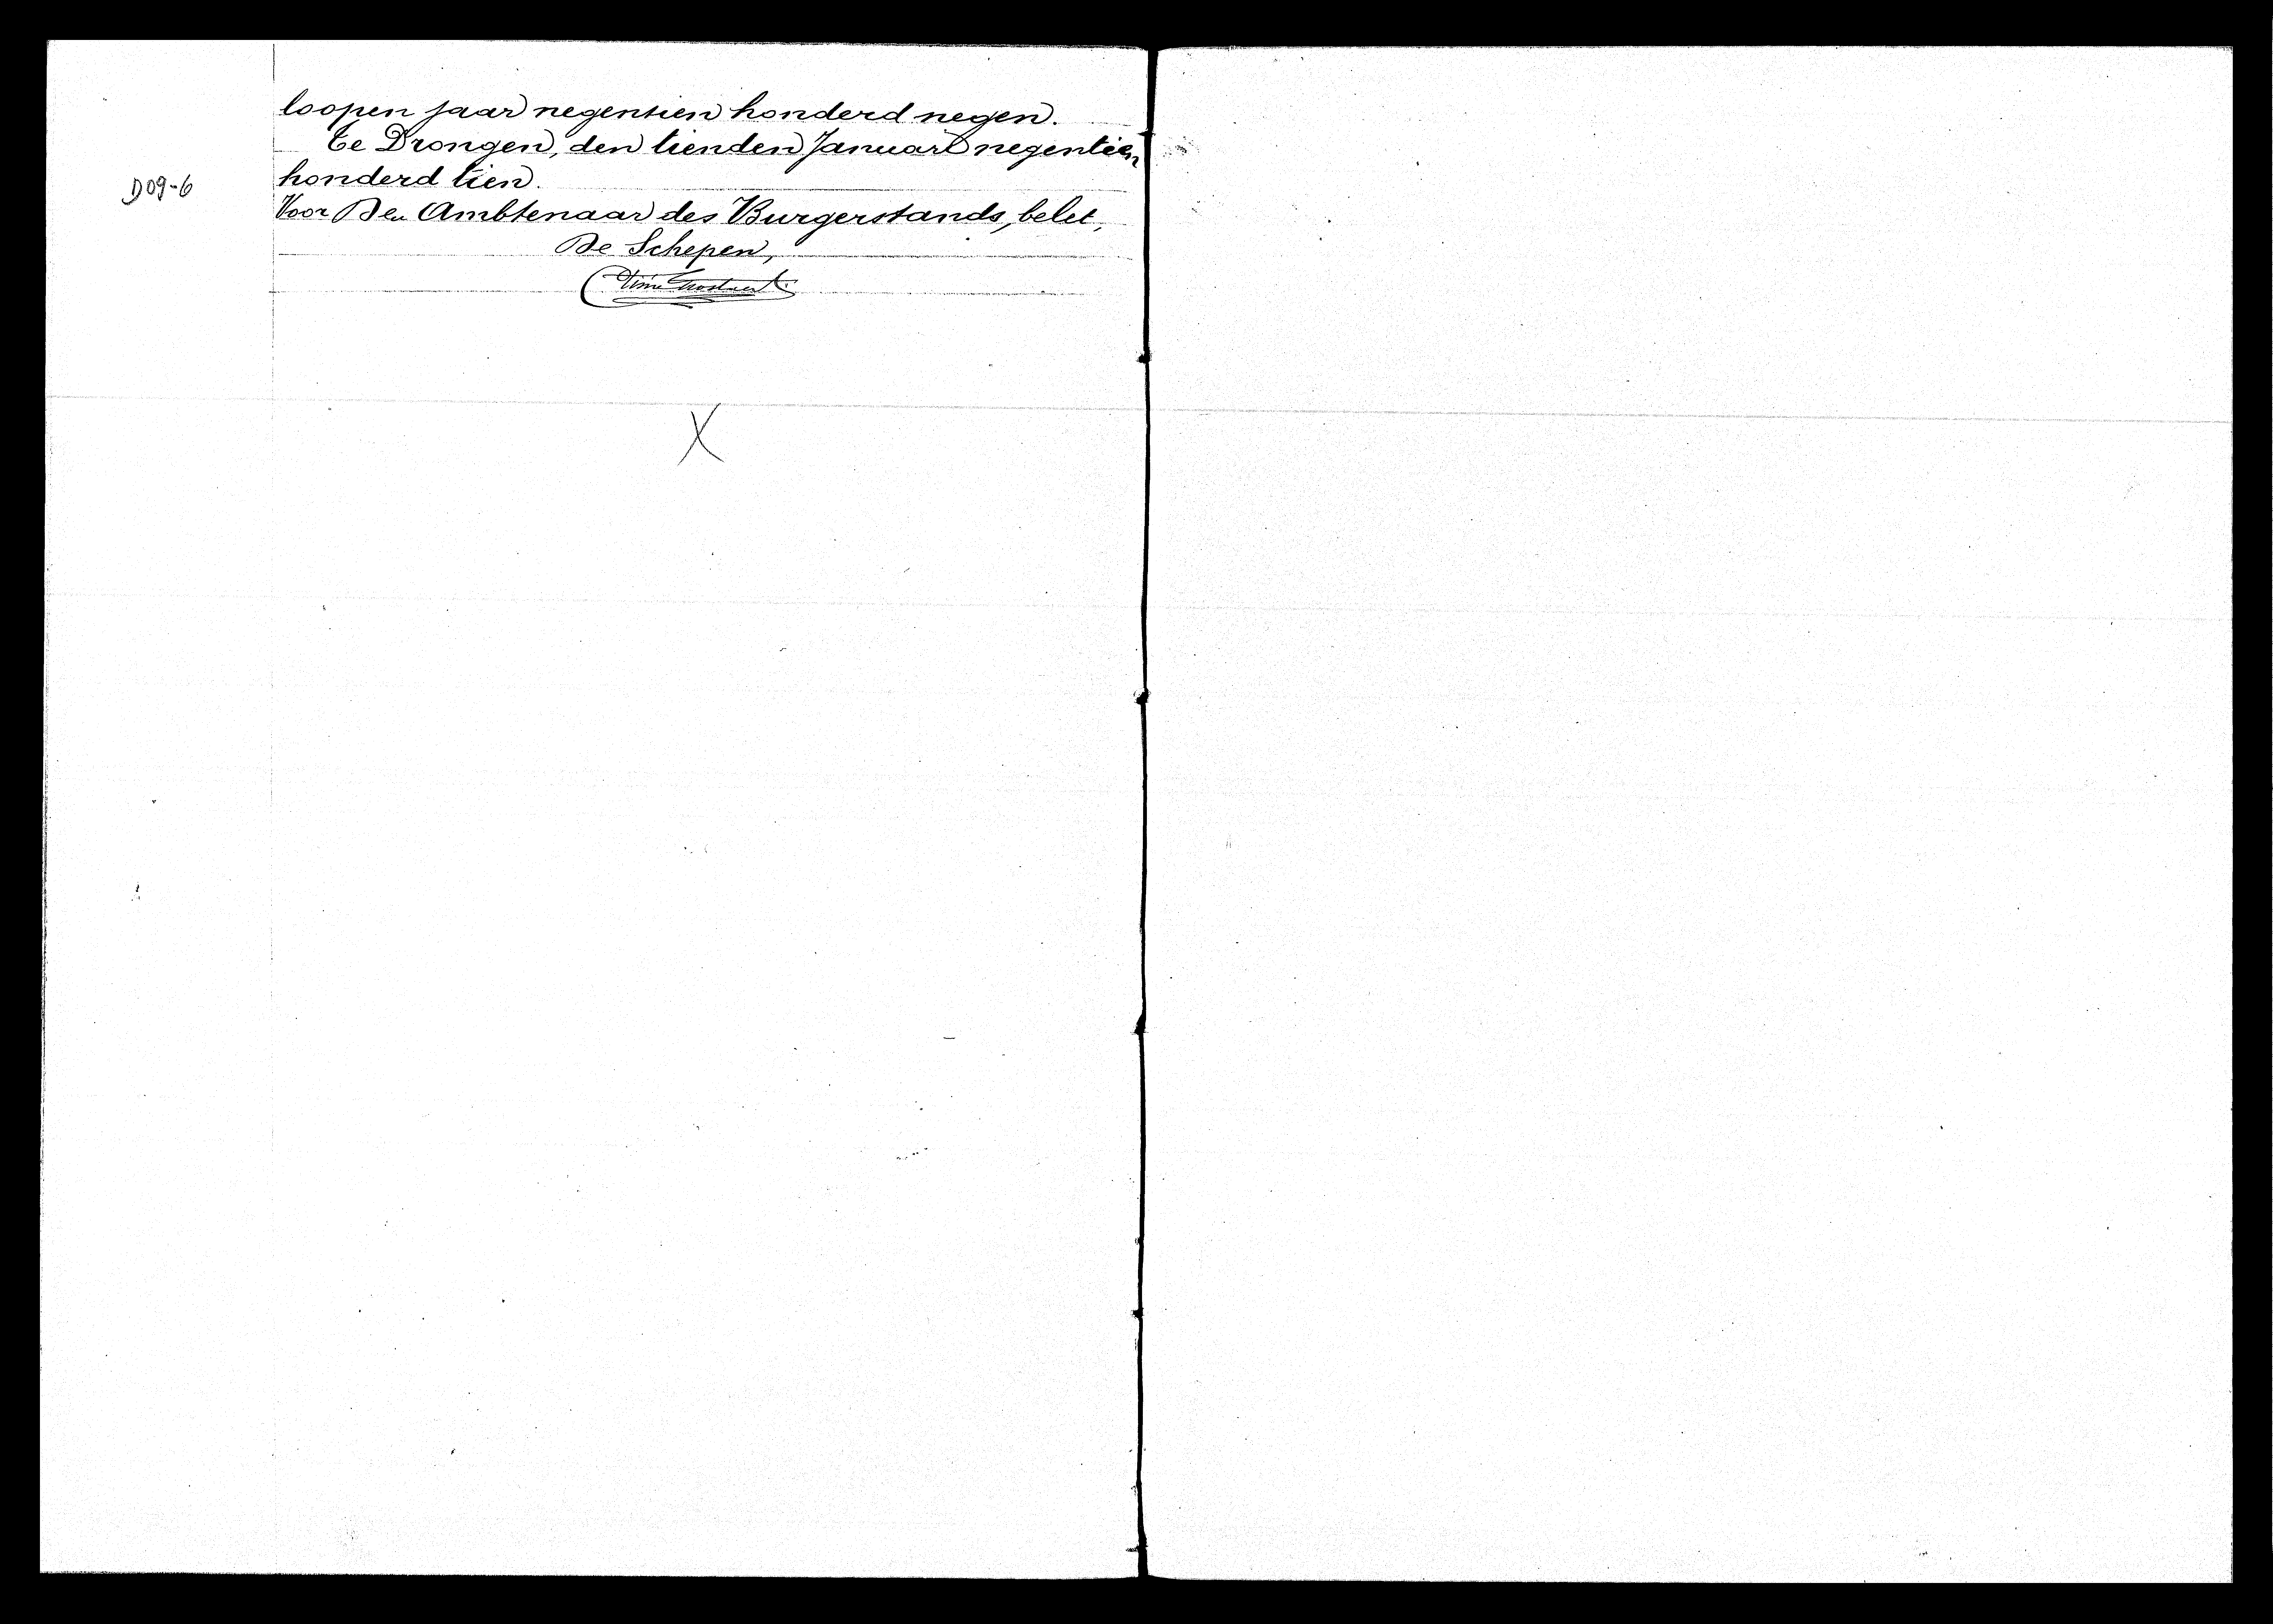 loopen jaar negentien honderd negen.
Te Drongen, den tienden Januari negentien
D09-6
honderd tien.
Voor Den Ambtenaar des Burgerstands, belet,
De Schepen,
X